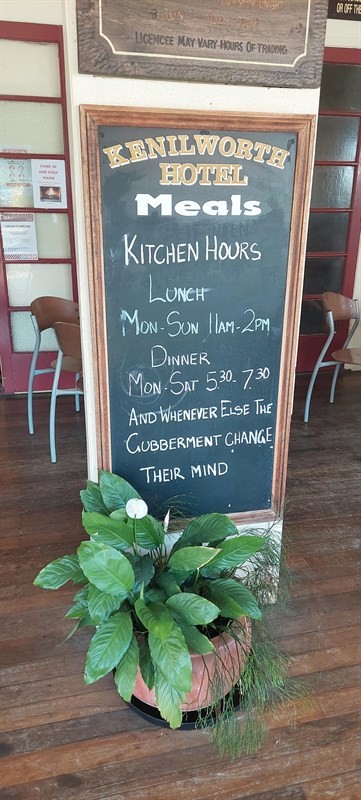 LICENCEE MAY VARY HOURS OF TRADING
OR OFF THE
KENILWORTH
HOTEL
Meals
KITCHEN HOURS
LUNCH
MON-SUN 11AM-2PM
DINNER
MON-SAT 5.30-7.30
AND WHENEVER ELSE THE
GUBBERMENT CHANGE
THEIR MIND